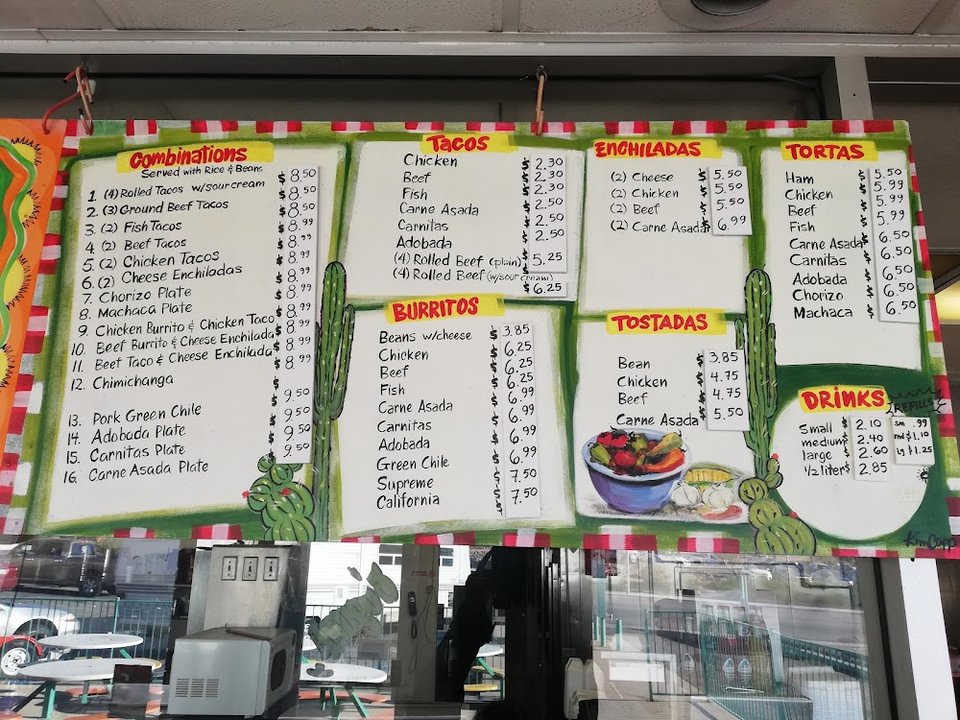 Combinations
Served with Rice & Beans
1. (4) Rolled Tacos w/sour cream $ 8.50
2. (3) Ground Beef Tacos $ 8.50
3. (2) Fish Tacos $ 8.50
4. (2) Beef Tacos $ 8.99
5. (2) Chicken Tacos $ 8.99
6. (2) Cheese Enchiladas $ 8.99
7. Chorizo Plate $ 8.99
8. Machaca Plate $ 8.99
9. Chicken Burrito & Chicken Taco $ 8.99
10. Beef Burrito & Cheese Enchilada $ 8.99
11. Beef Taco & Cheese Enchilada $ 8.99
12. Chimichanga $ 8.99
13. Pork Green Chile $ 9.50
14. Adobada Plate $ 9.50
15. Carnitas Plate $ 9.50
16. Carne Asada Plate $ 9.50
Tacos
Chicken $ 2.30
Beef $ 2.30
Fish $ 2.30
Carne Asada $ 2.50
Carnitas $ 2.50
Adobada $ 2.50
(4) Rolled Beef (plain) $ 5.25
(4) Rolled Beef (w/sour cream) $ 6.25
BURRITOS
Beans w/cheese $ 3.85
Chicken $ 6.25
Beef $ 6.25
Fish $ 6.25
Carne Asada $ 6.99
Carnitas $ 6.99
Adobada $ 6.99
Green Chile $ 6.99
Supreme $ 7.50
California $ 7.50
ENCHILADAS
(2) Cheese $ 5.50
(2) Chicken $ 5.50
(2) Beef $ 5.50
(2) Carne Asada $ 6.99
TOSTADAS
Bean $ 3.85
Chicken $ 4.75
Beef $ 4.75
Carne Asada $ 5.50
TORTAS
Ham $ 5.50
Chicken $ 5.99
Beef $ 5.99
Fish $ 5.99
Carne Asada $ 6.50
Carnitas $ 6.50
Adobada $ 6.50
Chorizo $ 6.50
Machaca $ 6.50
DRINKS
REFILLS
Small $ 2.10 sm .99
medium $ 2.40 md $1.10
large $ 2.60 lg $1.25
1/2 liter $ 2.85
Kim Capp